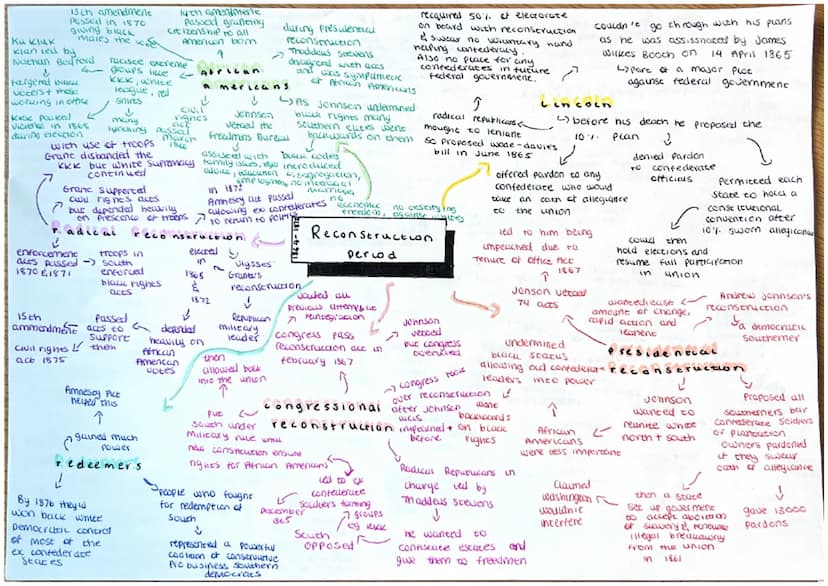 15th amendment
passed in 1870
giving black
males the vote
14th amendment
passed granting
citizenship to all
American born
during presidential
reconstruction
Thaddeus Stevens
disagreed with acts
and was sympathetic
of African Americans
African
Americans
Ku Klux
Klan led by
Nathan Bedford
racist extreme
groups like
KKK, white
league, red
shirts
targeted black
voters + those
working in office
KKK peaked
violence in 1865
during election
many
lynchings
civil
rights
act
passed
march
1866
Johnson
vetoed the
Freedmens Bureau
assisted with
family issues, legal
advice, education +
employment
black codes
introduced
segregation,
no interracial
marriage,
no
economic
freedom,
no testifying
against whites
As Johnson undermined
black rights many
Southern elites went
backwards on them
required 50% of electorate
on board with reconstruction
& swear no voluntary hand
helping confederacy.
Also no place for any
confederates in future
federal government.
radical republicans
thought to leniant
so proposed wade-davies
bill in June 1865
couldn't go through with his plans
as he was assassinated by James
Wilkes Booch on 14 April 1865
part of a major plot
against federal government
Lincoln
before his death he proposed the
10% plan
offered pardon to any
confederate who would
take an oath of allegiance
to the union
denied pardon
to confederate
officials
Permitted each
State to hold a
constitutional
convention after
10% sworn allegiance
could then
hold elections and
resume full participation
in union
with use of troops
Grant disbanded the
KKK but white supremacy
continued
Grant supported
civil rights acts
but depended heavily
on presence of troops
in 1872
Amnesty Act passed
allowing ex confederates
to return to politics
radical reconstruction
enforcement
acts passed
1870 & 1871
troops in
south
enforced
black rights
acts
elected
in
1868
&
1872
Ulysses
Grants
reconstruction
Republican
military
leader
depended
heavily on
African
American
votes
passed
acts to
support
them
15th
ammendment
civil rights
act 1875
1864-1877
Reconstruction
Period
voided all
previous attempts of
reintegration
congress pass
reconstruction act in
february 1867
Johnson
vetoed
but congress
overruled
then
allowed back
into the union
put
south under
military rule until
new constitution ensure
rights for African Americans
congressional
reconstruction
congress took
over reconstruction
after Johnson
was
impeached
before
went
backwards
on black
rights
Radical Republicans in
charge led by
Thaddeus Stevens
he wanted to
confiscate estates and
give them to freedmen
South
opposed
led to ex
confederate
soldiers forming
groups
eg KKK
December
1865
led to him being
impeached due to
Tenure of office Act
1867
Jonson vetoed
74 acts
wanted least
amount of change,
rapid action and
leniant
Andrew Johnson's
reconstruction
a democratic
southerner
Presidential
reconstruction
undermined
black status
allowing old confederate
leaders into power
African
Americans
were less important
Johnson
wanted to
reunite white
north + south
Proposed all
southerners bar
confederate soldiers
or plantation
owners pardoned
if they swear
oath of allegiance
gave 13000
pardons
then a state
set up government
to accept abolition
of slavery & renounce
illegal breakaway
from the union
in 1861
claimed
Washington
wouldnt
interfere
Amnesty Act
helped this
gained much
power
redeemers
By 1876 they'd
won back white
Democratic control
of most of the
ex confederate
States
people who fought
for redemption of
South
represented a powerful
coalition of conservative
pro business southern
democrats